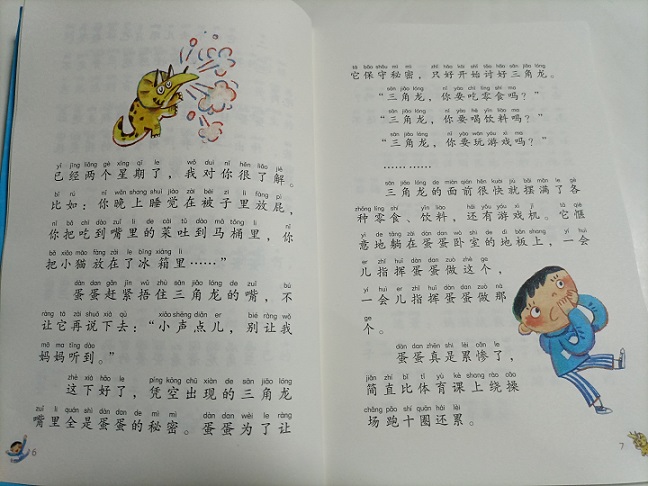 yǐ jīng liǎng gè xīng qī le wǒ duì nǐ hěn liǎo jiě
已经两个星期了，我对你很了解。
bǐ rú nǐ wǎn shang shuì jiào zài bèi zi li fàng pì
比如：你晚上睡觉在被子里放屁，
nǐ bǎ chī dào zuǐ li de cài tǔ dào mǎ tǒng li nǐ
你把吃到嘴里的菜吐到马桶里，你
bǎ xiǎo māo fàng zài le bīng xiāng li
把小猫放在了冰箱里……”
dàn dan gǎn jǐn wǔ zhù sān jiǎo lóng de zuǐ bù
蛋蛋赶紧捂住三角龙的嘴，不
ràng tā zài shuō xià qù xiǎo shēng diǎn er bié ràng wǒ
让它再说下去：“小声点儿，别让我
mā ma tīng dào
妈妈听到。”
zhè xià hǎo le píng kōng chū xiàn de sān jiǎo lóng
这下好了，凭空出现的三角龙
zuǐ li quán shì dàn dan de mì mì dàn dan wèi le ràng
嘴里全是蛋蛋的秘密。蛋蛋为了让
6
tā bǎo shǒu mì mì zhǐ hǎo kāi shǐ tǎo hǎo sān jiǎo lóng
它保守秘密，只好开始讨好三角龙。
sān jiǎo lóng nǐ yào chī líng shí ma
“三角龙，你要吃零食吗？”
sān jiǎo lóng nǐ yào hē yǐn liào ma
“三角龙，你要喝饮料吗？”
sān jiǎo lóng nǐ yào wán yóu xì ma
“三角龙，你要玩游戏吗？”
…………
sān jiǎo lóng de miàn qián hěn kuài jiù bǎi mǎn le gè
三角龙的面前很快就摆满了各
zhǒng líng shí yǐn liào hái yǒu yóu xì jī tā qiè
种零食、饮料，还有游戏机。它惬
yì de tǎng zài dàn dan wò shì de dì bǎn shang yí huì
意地躺在蛋蛋卧室的地板上，一会
er zhǐ huī dàn dan zuò zhè ge
儿指挥蛋蛋做这个，
yí huì er zhǐ huī dàn dan zuò nà
一会儿指挥蛋蛋做那
ge
个。
dàn dan zhēn shì lèi cǎn le
蛋蛋真是累惨了，
jiǎn zhí bǐ tǐ yù kè shang rào cāo
简直比体育课上绕操
chǎng pǎo shí quān hái lèi
场跑十圈还累。
7